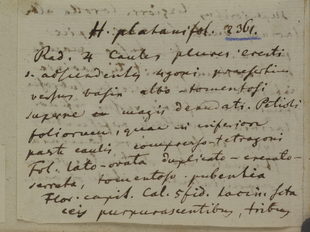 H. platanifol. 2361.
Rad. 4 Caules plures erecti
s. adscendentes 4goni praesertim
versus basis albo-tomentosi
superne magis denudati. Petioli
foliorum, quae in inferiori
part caulis, compresso-tetragoni
Fol. lato-ovata duplicato-crenato-
serrata, tomentoso-pubentia
Flor. capit. Cal. 5fid. lacin. seta
ceis purpurascentibus, tribus